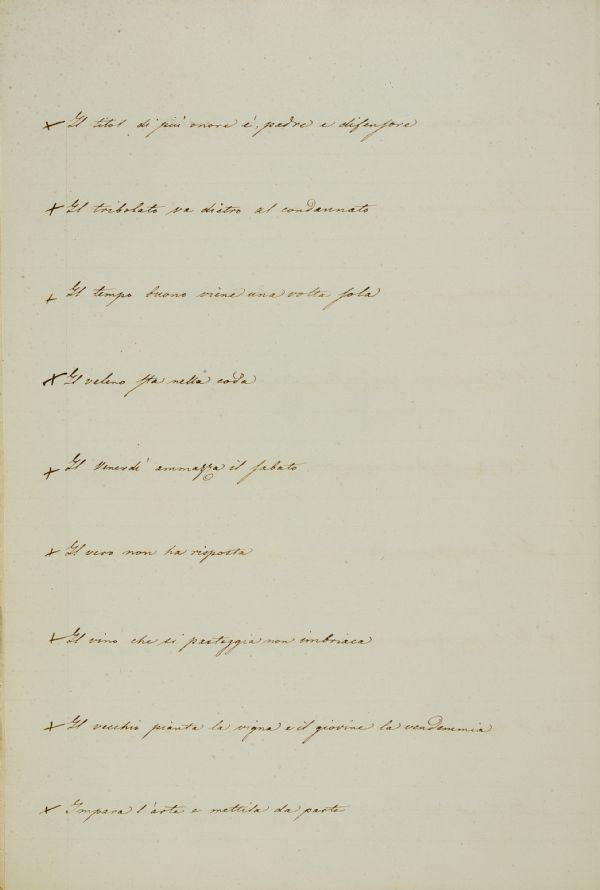 × Il titol di più onore è, padre e difensore
× Il tribolato va dietro al condannato
× Il tempo buono viene una volta sola
× Il veleno sta nella coda
× Il Venerdì ammazza il sabato
× Il vero non ha risposta
× Il vino che si pasteggia non imbriaca
× Il vecchio pianta la vigna e il giovine la vendemmia
× Impara l'arte e mettila da parte